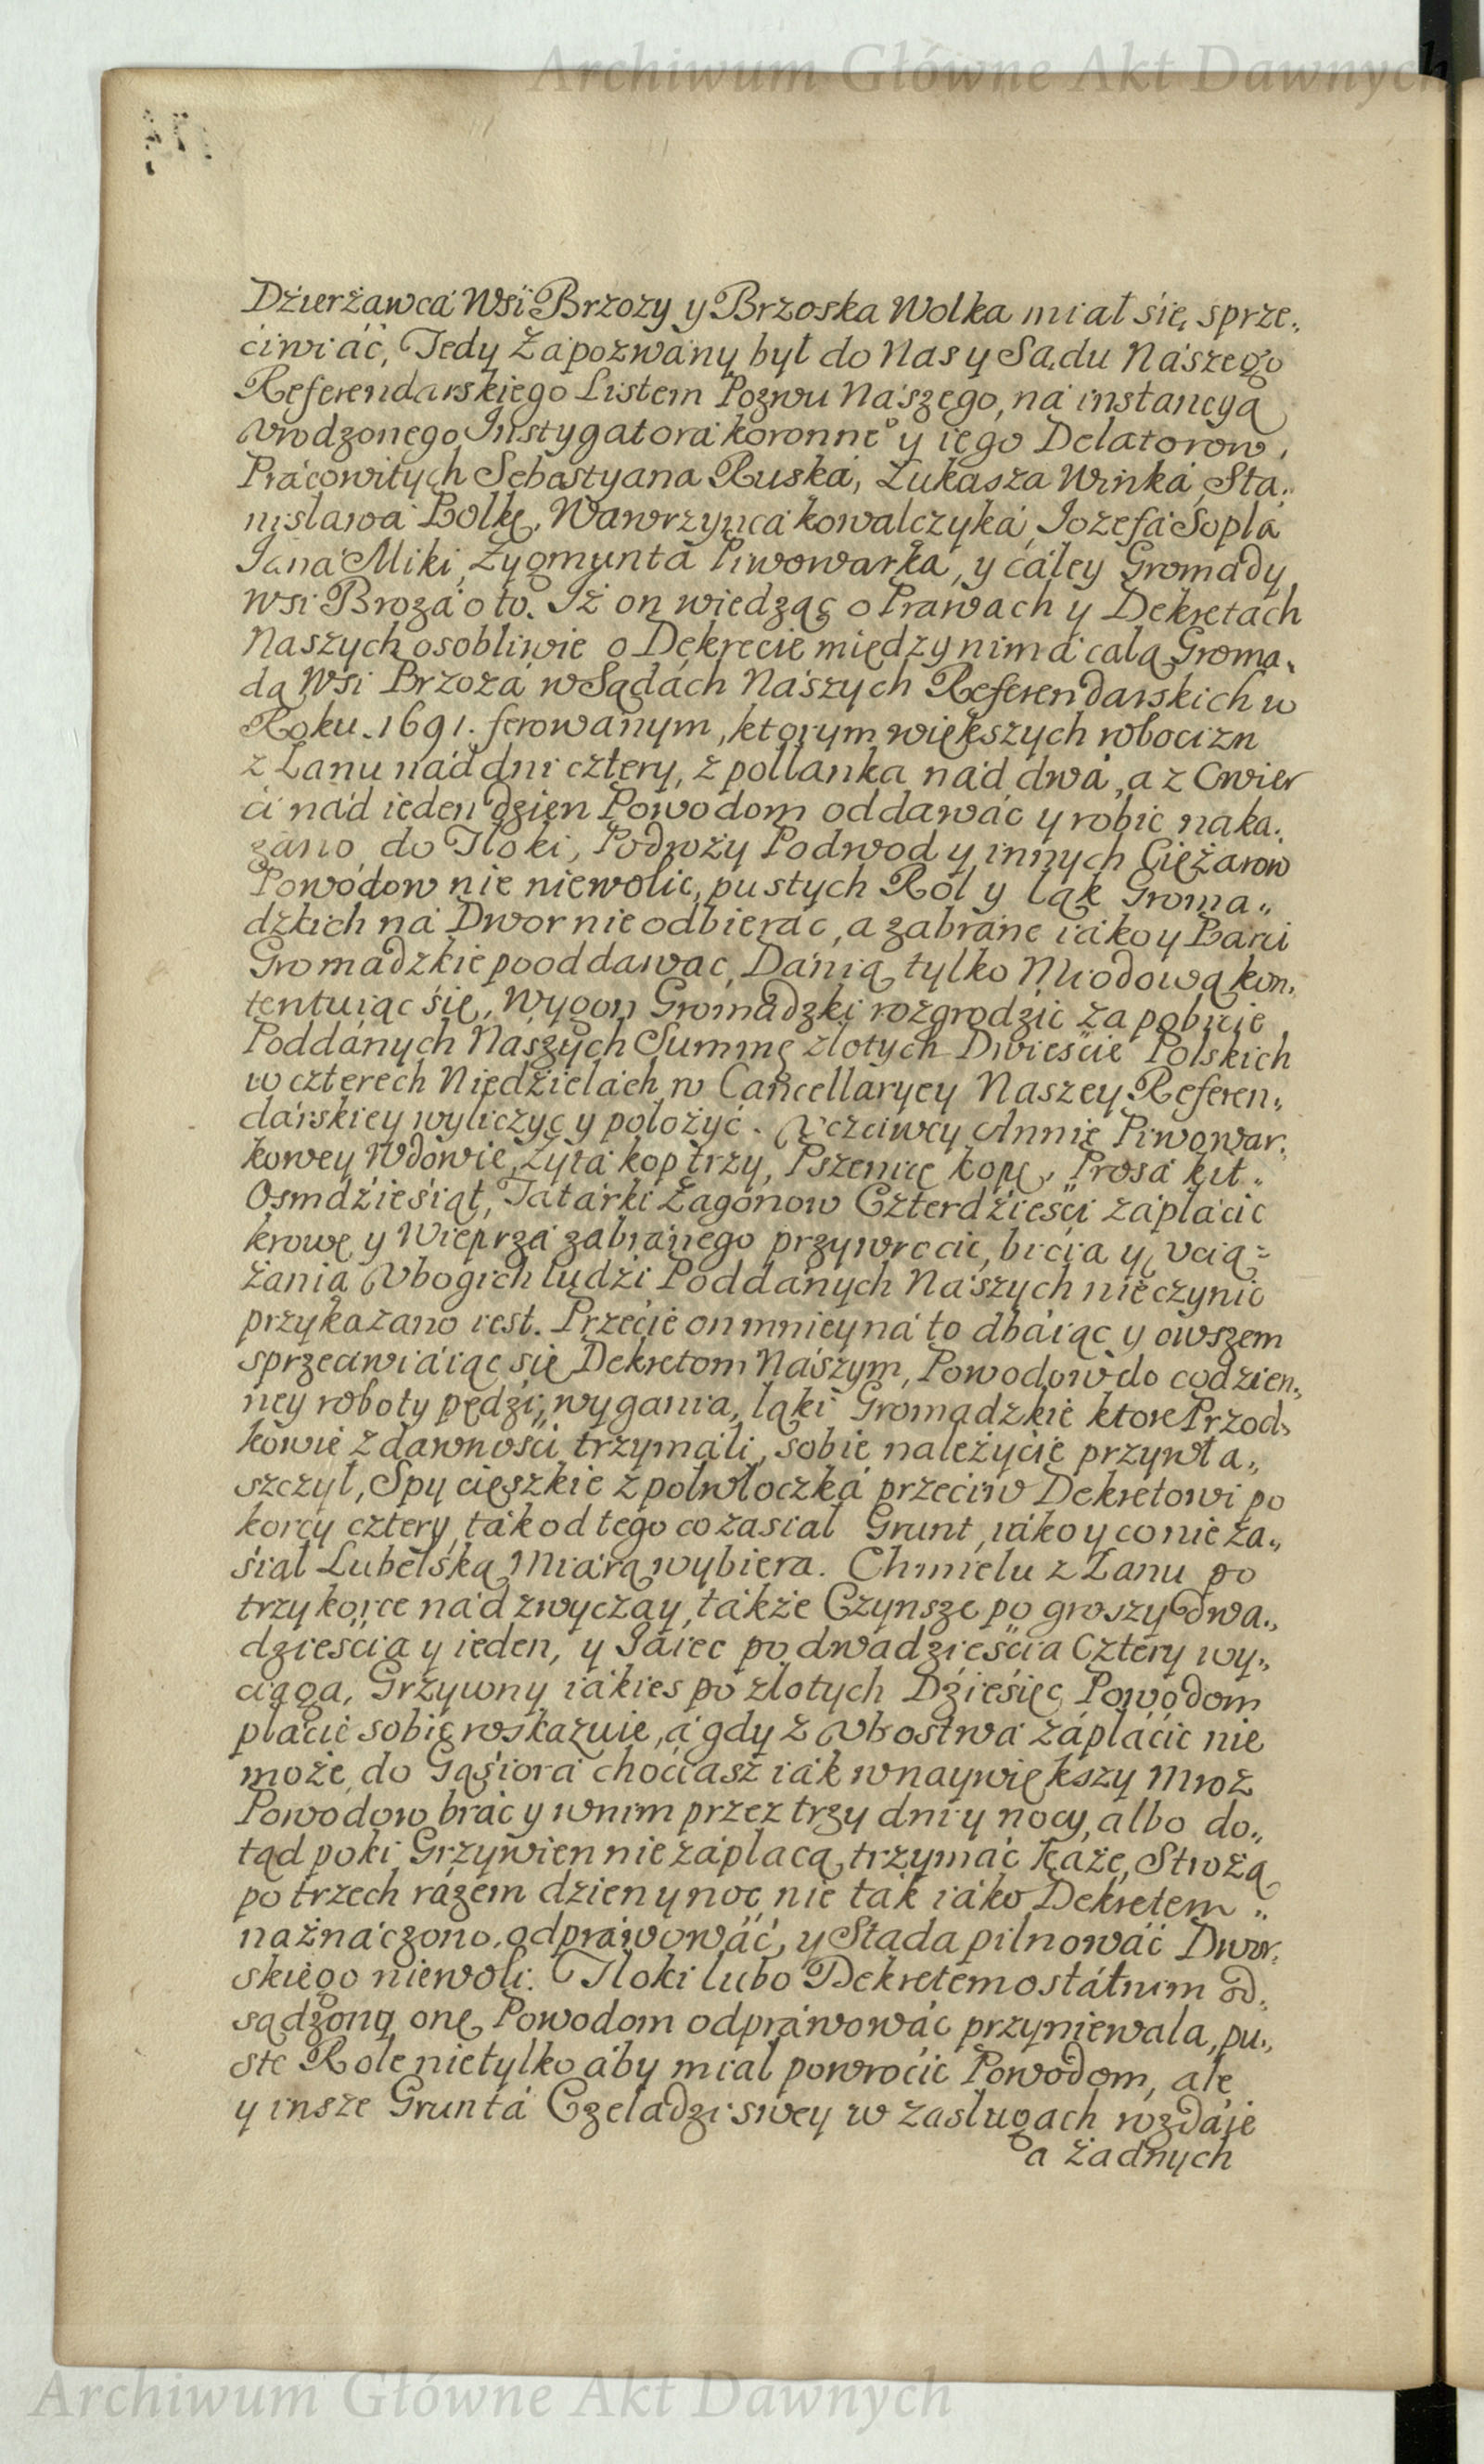 Archiwum Główne Akt Dawnych
Dźierżawcá Wsi Brzozy y Brzoska Wolka miał się sprze„
ćiwiáć, Tedy Zápozwány był do Nas y Sądu Nászego
Referendarskiego Listem Pozwu Nászego, ná instancyą
Vrodzonego Instygatorá koronne° y iego Delatorow,
Prácowitych Sebastyana Ruská, Łukasza Winká, Sta„
nisława Bolkę, Wawrzyńca kowalczyká, Jozefá Soplá
Janá Miki, Zygmuntá Piwowarka, y cáłey Gromády
wsi Brozá o to. Iż on wiedząc o Prawách y Dekretách
Naszych osobliwie o Dekrecie między nim á całą Groma„
dą Wsi Brzozá w Sądách Nászych Referendarskich w
Roku. 1691. ferowánym, ktorym większych robocizn
z Łanu nád dni cztery, z połłanka nád dwá, a z Cwier
ci nád ieden dzien Powodom oddawáć y robić naka„
zano, do Tłoki, Podroży Podwod y innych Ciężarow
Powodow nie niewolić, pustych Rol y łąk Groma„
dzkich ná Dwor nie odbieráć, a zabráne iáko y Barci
Gromadzkie pooddawać, Dánią tylko Miodową kon„
tentuiąc się, Wygon Gromadzki rozgrodzić zá pobicie
Poddánych Nászych Summę złotych Dwieście Polskich
w czterech Niedzielách w Cancellaryey Naszey Referen„
dárskiey wyliczyć y położyć. Vczciwey Annie Piwowar„
kowey Wdowie, Żytá kop trzy, Pszenicę kopę, Prosá kit„
Osmdźieśiąt, Tatárki Zagonow Czterdźieśći zápłácić
krowę y Wieprzá zabránego przywrocić, bićia y vcią=
żania Vbogich ludźi Poddánych Nászych nie czynić
przykazano iest. Przećie on mniey ná to dbáiąc y owszem
sprzeciwiáiąc się Dekretom Nászym, Powodow do codzien„
ney roboty pędzi, wygania, łąki Gromadzkie ktore Przod„
kowie z dawnośći trzymáli, sobie należycie przywła„
szczył, Spy cięszkie z połwłoczká przećiw Dekretowi po
korcy cztery, ták od tego co zasiał Grunt, iáko y co nie zá„
śiał Lubelską Miárą wybiera. Chmielu z Łanu po
trzy korce nád zwyczay, tákże Czynsze po groszy dwa„
dzieścia y ieden, y Jáiec po dwadzieścia Cztery wy„
ciąga, Grzywny iákies po złotych Dźieśięć Powodom
płácić sobie roskázuie, á gdy z Vbostwá zápłáćić nie
może, do Gąśiorá choćiasz iák wnaywiększy Mroz
Powodow bráć y w nim przez trzy dni y nocy, albo do„
tąd poki Grzywien nie zápłacą trzymáć każe, Strożą
po trzech rázem dzien y noc, nie ták iáko Dekretem „
náznáczono, odpráwowáć, y Stada pilnowáć Dwor„
skiego niewoli. Tłoki lubo Dekretem ostátnim od„
sądzoną onę Powodom odpráwowáć przyniewala, pu„
ste Role nie tylko áby miał powrocić Powodom, ale
y insze Gruntá Czeladzi swey w zasługach rozdáie
a żadnych
Archiwum Główne Akt Dawnych